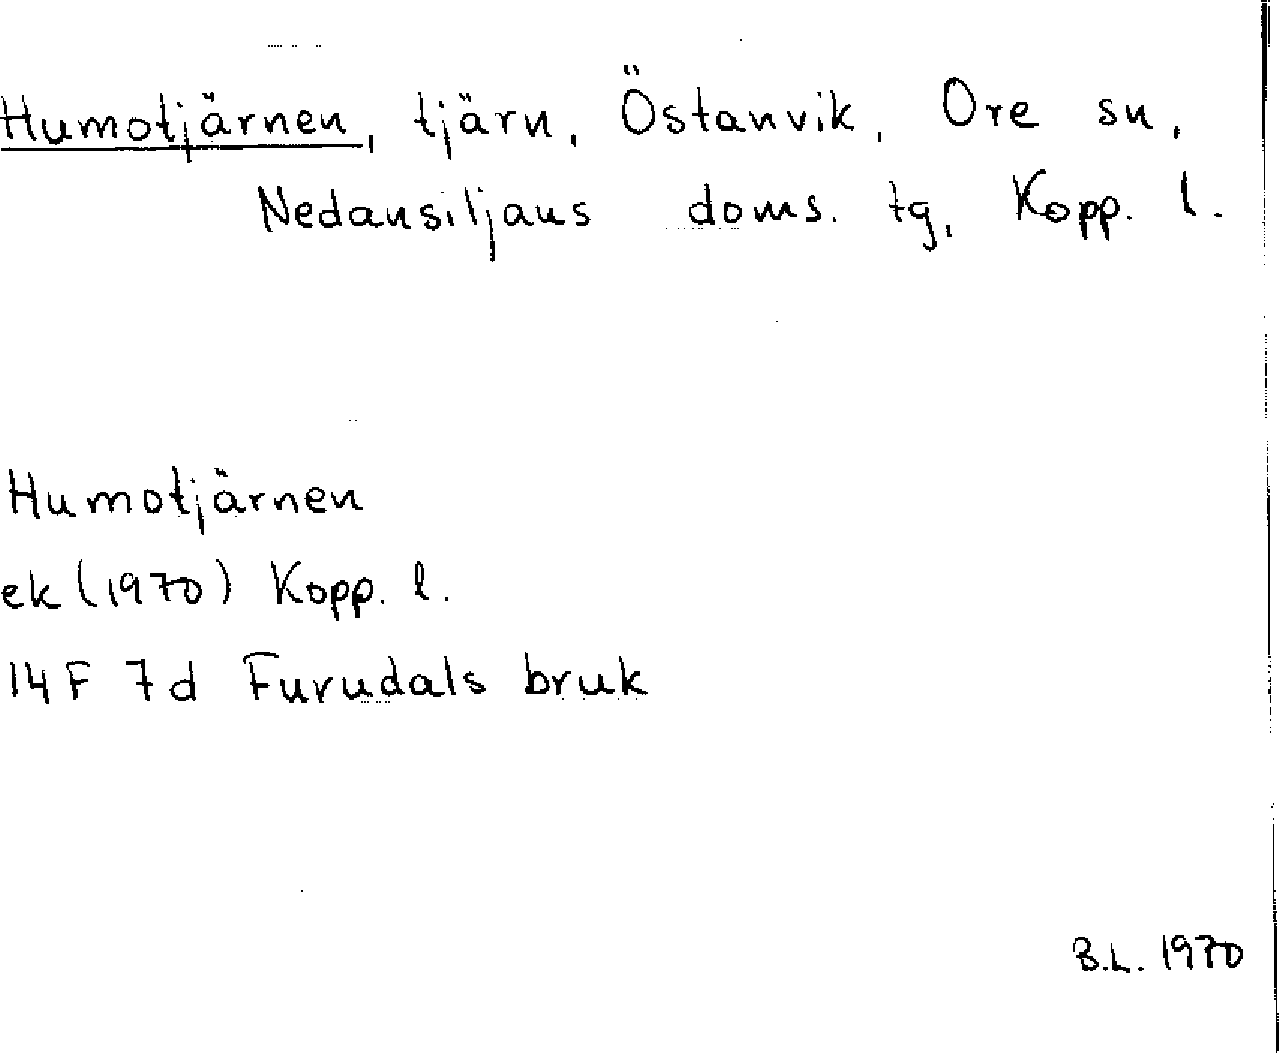 Humotjärnen, tjärn, Östanvik, Ore sn,
Nedansiljans doms. tg, Kopp. l.
Humotjärnen
ek (1970) Kopp. l.
14 F 7d Furudals bruk
B.L. 1970